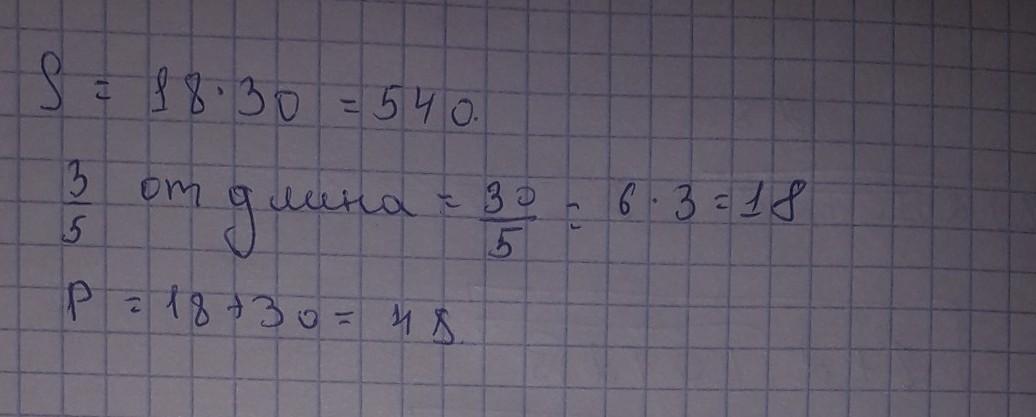 S = 18·30 = 540.
3/5 от длина = 30/5 = 6·3=18
P = 18+30 = 48.